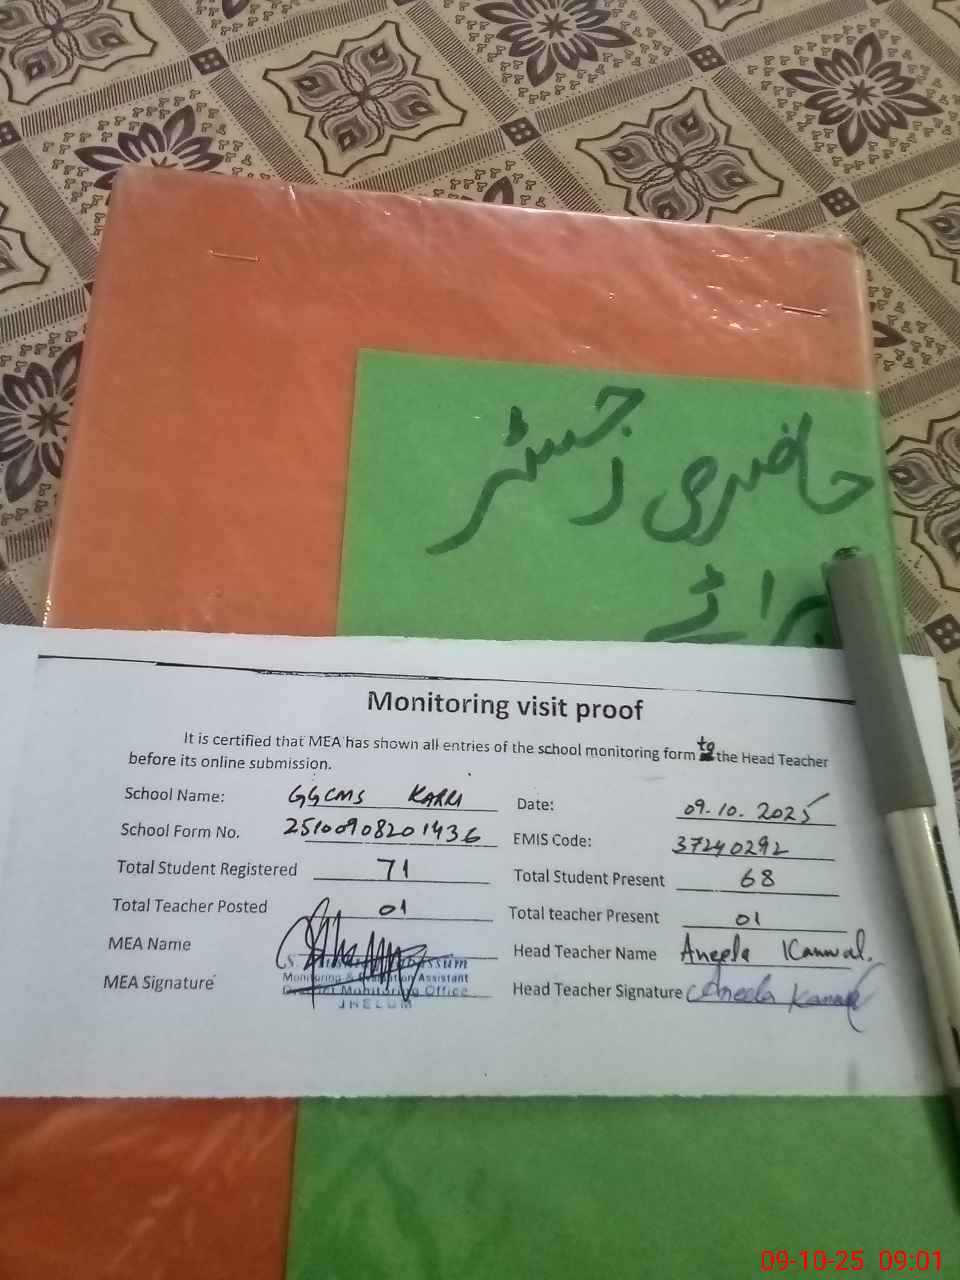 حاضری رجسٹر
برائے
Monitoring visit proof
It is certified that MEA has shown all entries of the school monitoring form to the Head Teacher
before its online submission.
School Name: GGCMS KARRI Date: 09.10.2025
School Form No. 25100908201436 EMIS Code: 37240292
Total Student Registered 71 Total Student Present 68
Total Teacher Posted 01 Total teacher Present 01
MEA Name Head Teacher Name Aneela Kanwal.
MEA Signature Head Teacher Signature Aneela Kanwal
Monitoring & Evaluation Assistant
District Monitoring Office
JHELUM
09-10-25 09:01